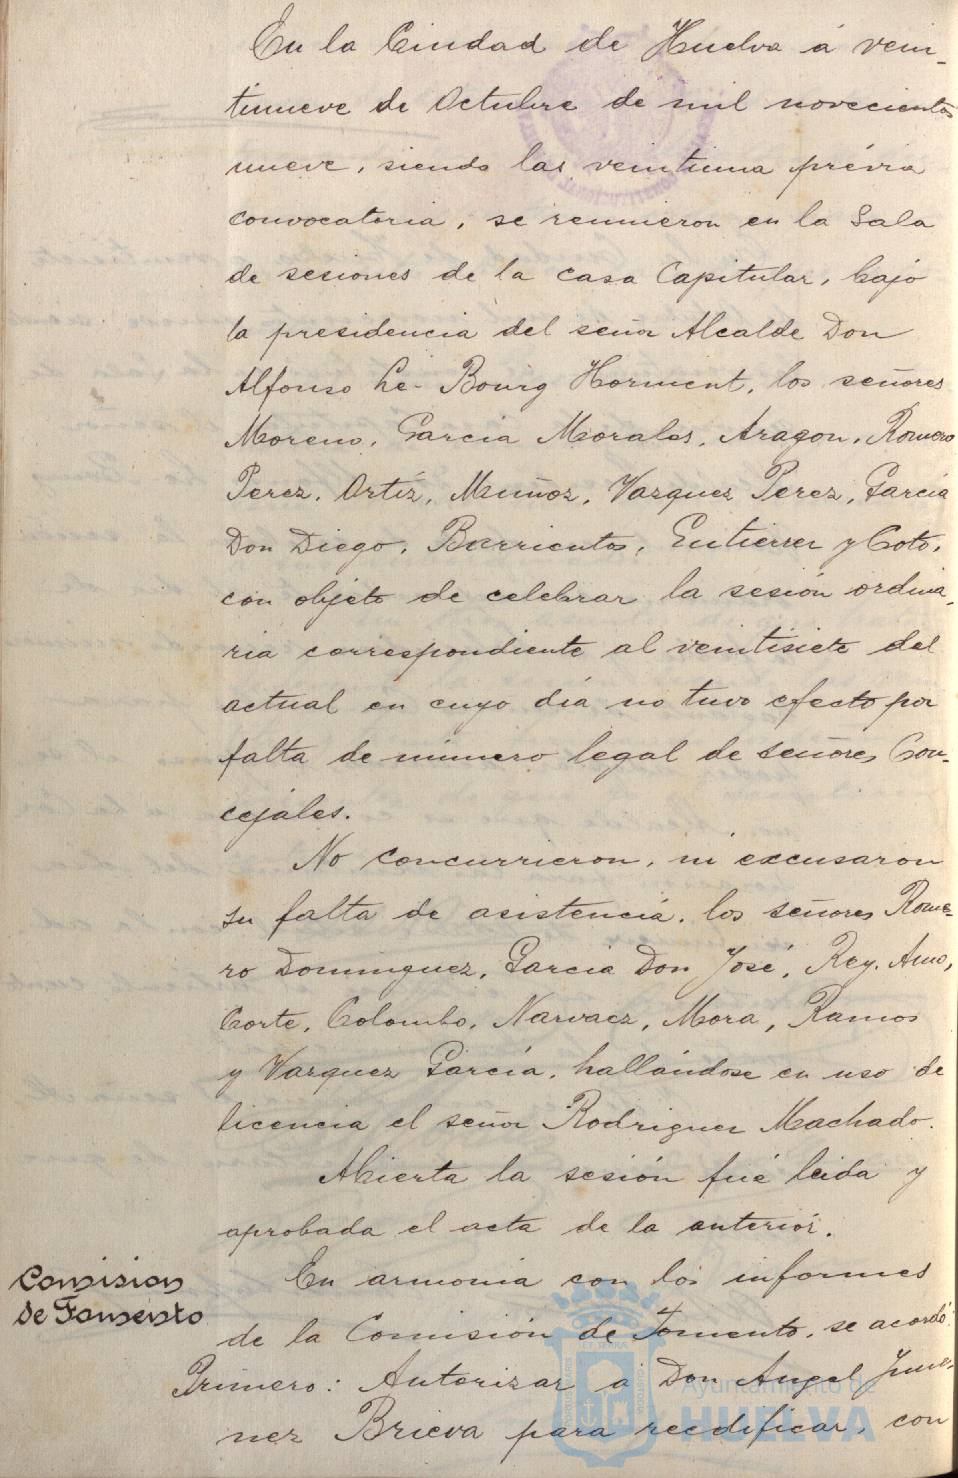 En la Ciudad de Huelva á vein-
tinueve de Octubre de mil novecientos
nueve, siendo las veintiuna prévia
convocatoria, se reunieron en la Sala
de sesiones de la casa Capitular, bajo
la presidencia del señor Alcalde Don
Alfonso Le-Bourg Horment, los señores
Moreno, Garcia Morales, Aragon, Romero
Perez, Ortíz, Muñoz, Vazquez Perez, García
Don Diego, Barrientos, Gutierrez y Coto,
con objeto de celebrar la sesión ordina-
ria correspondiente al veintisiete del
actual en cuyo día no tuvo efecto por
falta de número legal de señores Con-
cejales.
No concurrieron, ni excusaron
su falta de asistencia, los señores Rome-
ro Dominguez, Garcia Don José, Rey, Amo,
Corte, Colombo, Narvaez, Mora, Ramos
y Vazquez García, hallándose en uso de
licencia el señor Rodriguez Machado.
Abierta la sesión fué leida y
aprobada el acta de la anterior.
Comision
de Fomento
En armonia con los informes
de la Comisión de Fomento, se acordó:
Primero: Autorizar á Don Angel Jime-
nez Brieva para reedificar, con
Ayuntamiento de
HUELVA